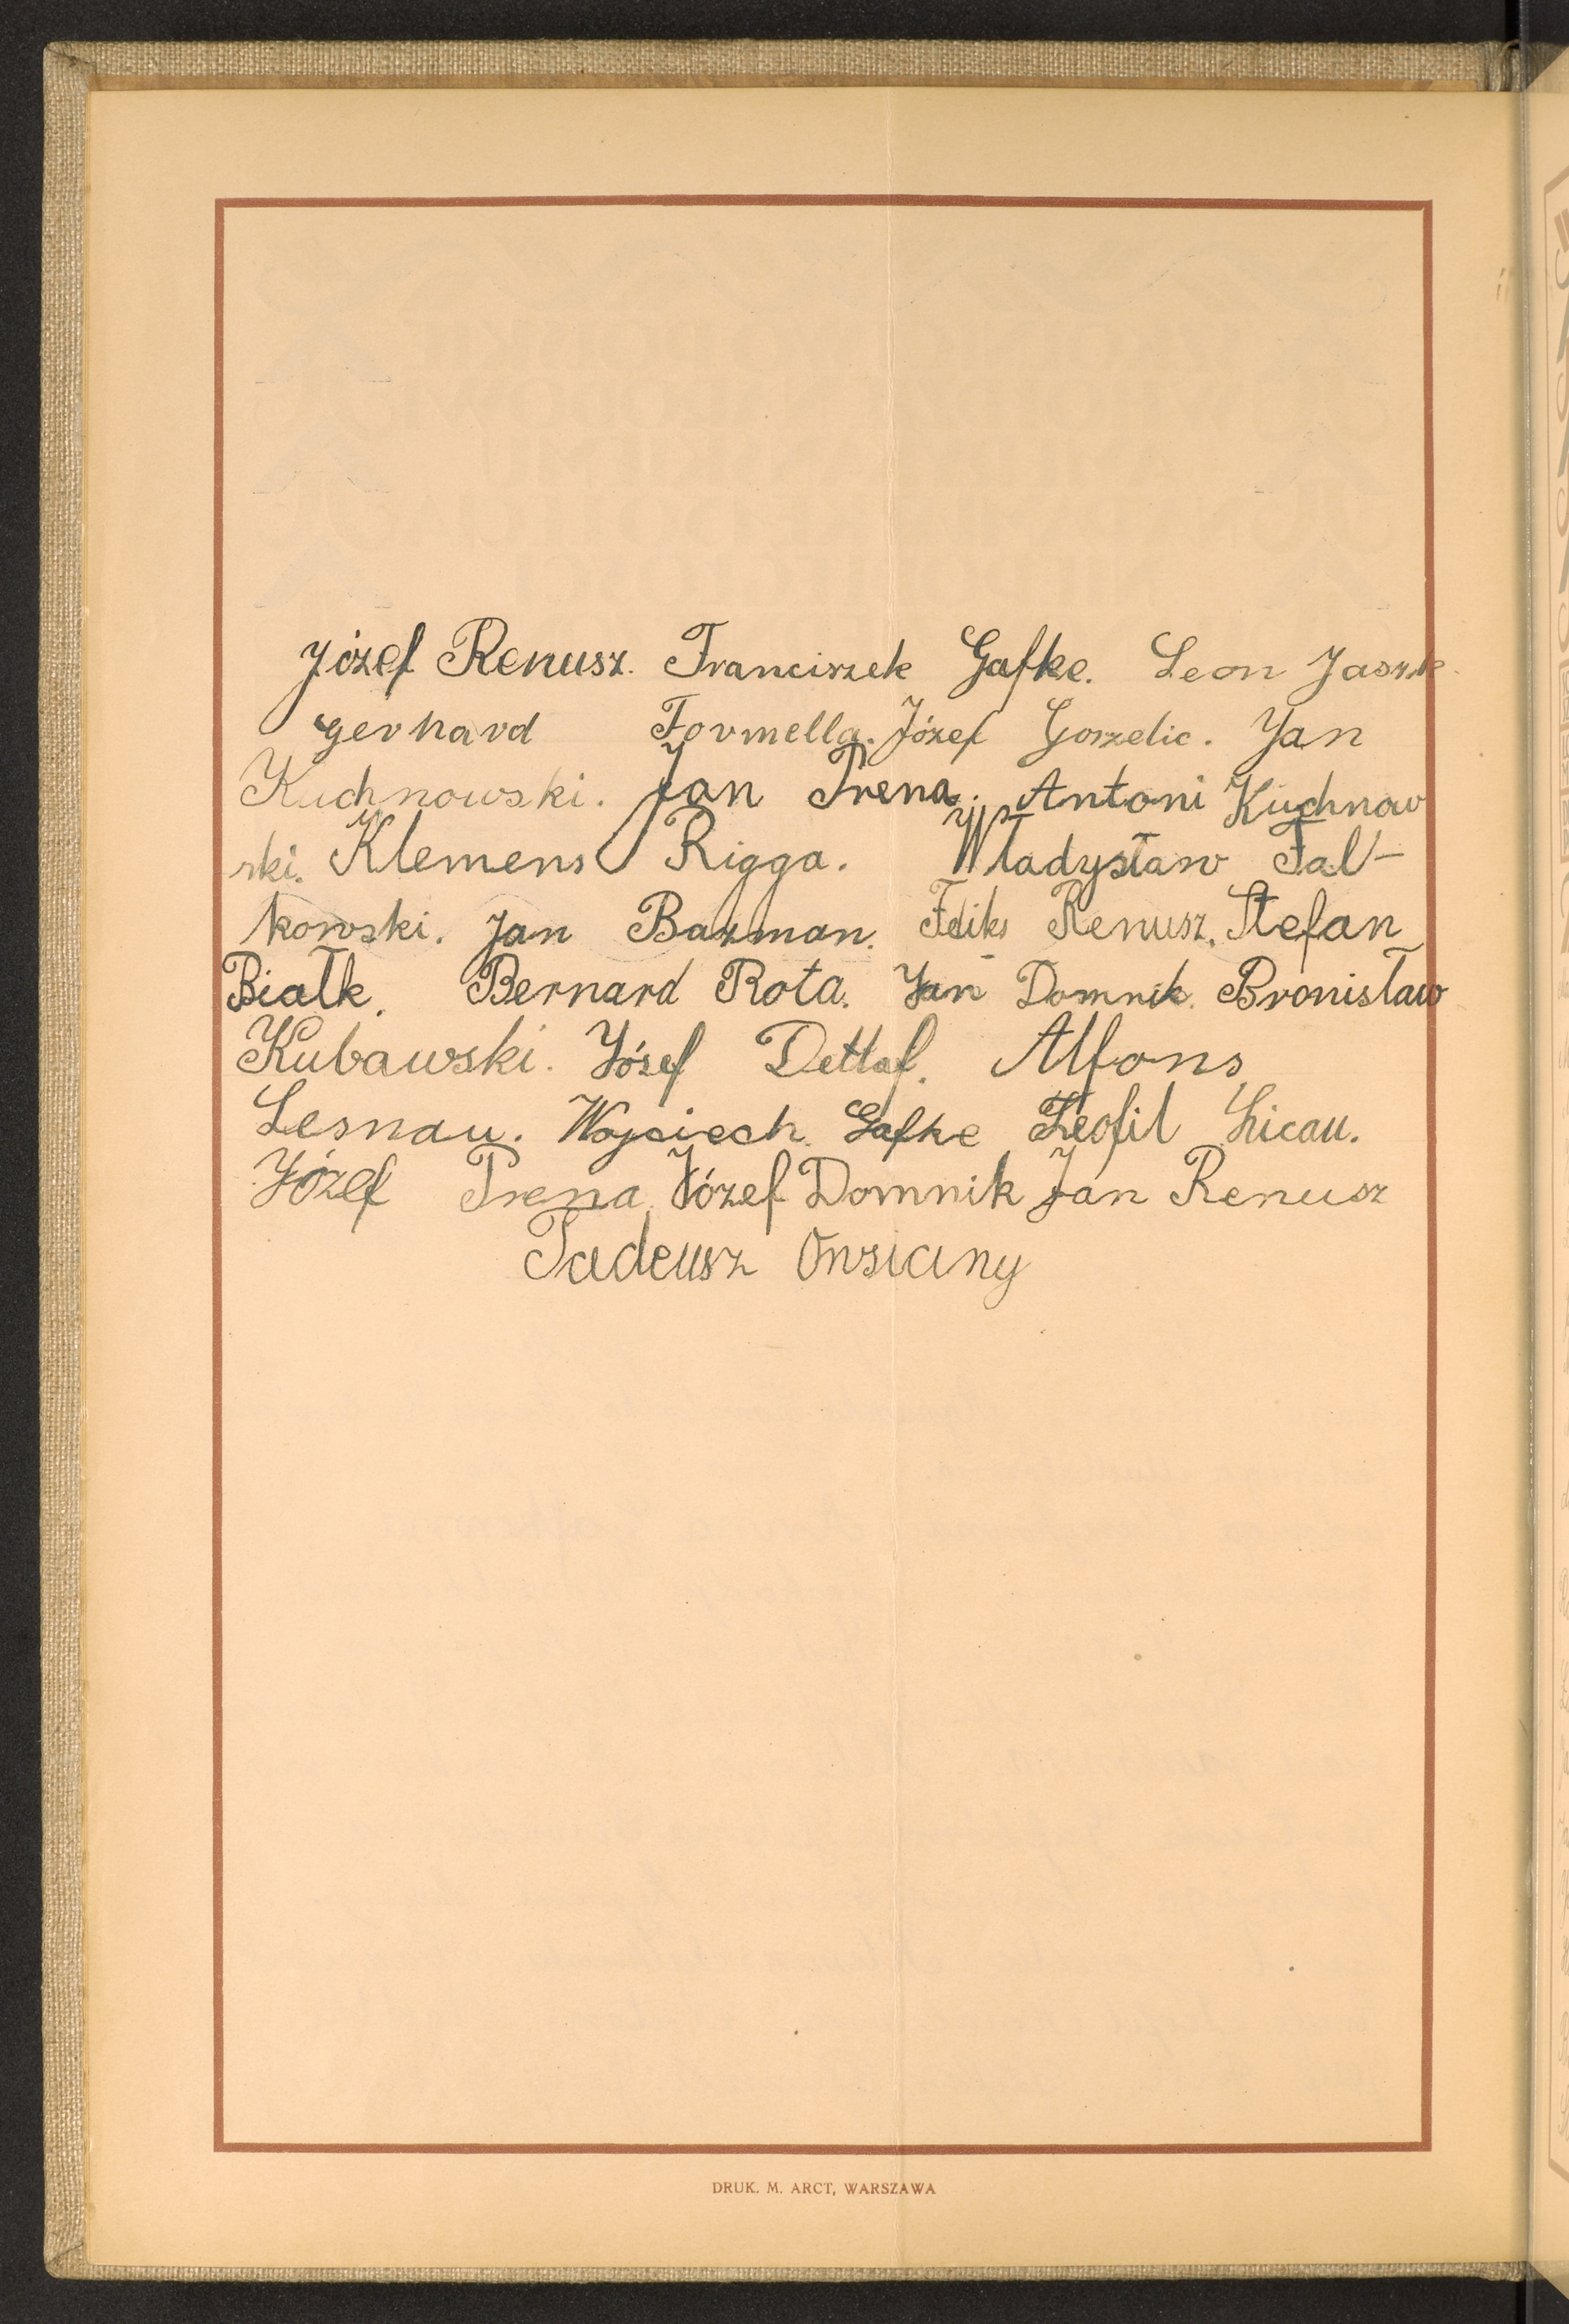 Józef Renusz. Franciszek Gafke. Leon Jaszk
Gerhard Formella. Józef Goszelic. Jan
Kuchnowski. Jan Trena. Antoni Kuchnow
ski. Klemens Rigga. Władysław Fal-
kowski. Jan Bazman. Feliks Renusz. Stefan
Białk. Bernard Rota. Jan Domnik. Bronisław
Kubawski. Józef Detlaf. Alfons
Lesnau. Wojciech Gafke Teofil Licau.
Józef Trena. Józef Domnik Jan Renusz
Tadeusz
DRUK. M. ARCT, WARSZAWA